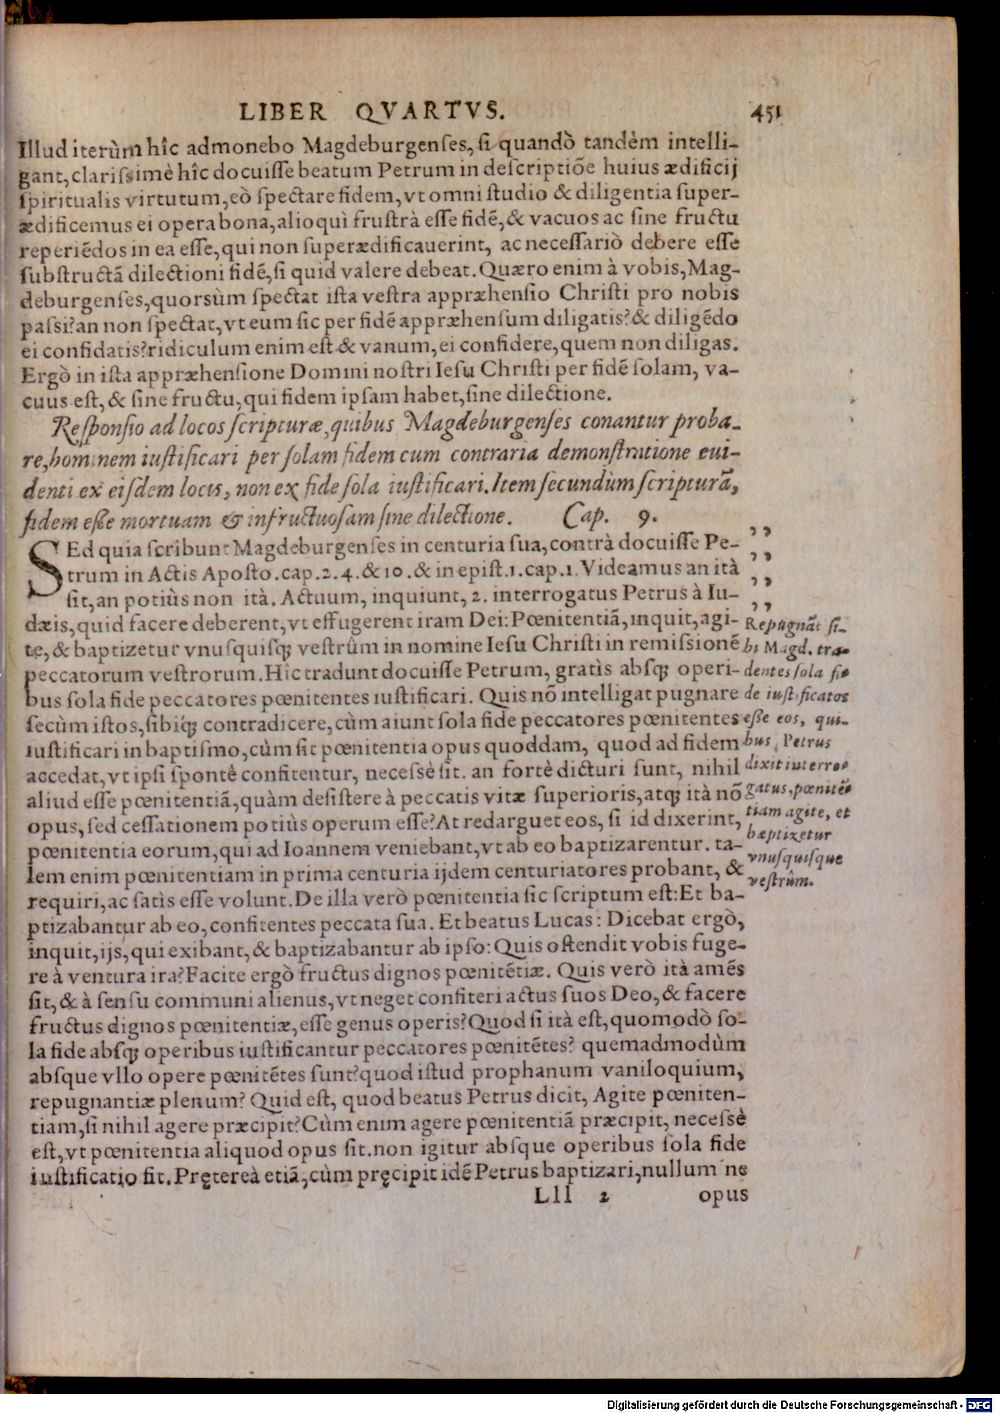 LIBER QVARTVS. 451
Illud iterùm hîc admonebo Magdeburgenſes, ſi quandò tandèm intelli-
gant, clariſsimè hîc docuiſſe beatum Petrum in deſcriptiõe huius ædificij
ſpiritualis virtutum, eò ſpectare fidem, vt omni ſtudio & diligentia ſuper-
ædificemus ei opera bona, alioquì fruſtrà eſſe fidẽ, & vacuos ac ſine fructu
reperiẽdos in ea eſſe, qui non ſuperædificauerint, ac neceſſariò debere eſſe
ſubſtructã dilectioni fidẽ, ſi quid valere debeat. Quæro enim à vobis, Mag-
deburgenſes, quorsùm ſpectat iſta veſtra appræhenſio Chriſti pro nobis
paſsi? an non ſpectat, vt eum ſic per fidẽ appræhenſum diligatis? & diligẽdo
ei confidatis? ridiculum enim eſt & vanum, ei confidere, quem non diligas.
Ergò in iſta appræhenſione Domini noſtri Ieſu Chriſti per fidẽ ſolam, va-
cuus eſt, & ſine fructu, qui fidem ipſam habet, ſine dilectione.
Reſponſio ad locos ſcripturæ, quibus Magdeburgenſes conantur proba-
re, hominem iuſtificari per ſolam fidem cum contraria demonſtratione eui-
denti ex eiſdem locis, non ex fide ſola iuſtificari. Item ſecundùm ſcripturã,
fidem eſſe mortuam & infructuoſam ſine dilectione. Cap. 9.
SEd quia ſcribunt Magdeburgenſes in centuria ſua, contrà docuiſſe Pe- ,,
trum in Actis Apoſto. cap. 2. 4. & 10. & in epiſt. 1. cap. 1. Videamus an ità ,,
ſit, an potiùs non ità. Actuum, inquiunt, 2. interrogatus Petrus à Iu- ,,
dæis, quid facere deberent, vt effugerent iram Dei: Pœnitentiã, inquit, agi- ,,
te, & baptizetur vnuſquiſq; veſtrûm in nomine Ieſu Chriſti in remiſsionẽ
peccatorum veſtrorum. Hîc tradunt docuiſſe Petrum, gratìs abſq; operi-
bus ſola fide peccatores pœnitentes iuſtificari. Quis nõ intelligat pugnare
ſecùm iſtos, ſibiq; contradicere, cùm aiunt ſola fide peccatores pœnitentes
iuſtificari in baptiſmo, cùm ſit pœnitentia opus quoddam, quod ad fidem
accedat, vt ipſi ſpontè confitentur, neceſsè ſit. an fortè dicturi ſunt, nihil
aliud eſſe pœnitentiã, quàm deſiſtere à peccatis vitæ ſuperioris, atq; ità nõ
opus, ſed ceſſationem potiùs operum eſſe? At redarguet eos, ſi id dixerint,
pœnitentia eorum, qui ad Ioannem veniebant, vt ab eo baptizarentur. ta-
lem enim pœnitentiam in prima centuria ijdem centuriatores probant, &
requiri, ac ſatìs eſſe volunt. De illa verò pœnitentia ſic ſcriptum eſt: Et ba-
ptizabantur ab eo, confitentes peccata ſua. Et beatus Lucas: Dicebat ergò,
inquit, ijs, qui exibant, & baptizabantur ab ipſo: Quis oſtendit vobis fuge-
re à ventura ira? Facite ergò fructus dignos pœnitẽtiæ. Quis verò ità amẽs
ſit, & à ſenſu communi alienus, vt neget confiteri actus ſuos Deo, & facere
fructus dignos pœnitentiæ, eſſe genus operis? Quod ſi ità eſt, quomodò ſo-
la fide abſq; operibus iuſtificantur peccatores pœnitẽtes? quemadmodùm
abſque vllo opere pœnitẽtes ſunt? quod iſtud prophanum vaniloquium,
repugnantiæ plenum? Quid eſt, quod beatus Petrus dicit, Agite pœniten-
tiam, ſi nihil agere præcipit? Cùm enim agere pœnitentiã præcipit, neceſsè
eſt, vt pœnitentia aliquod opus ſit. non igitur abſque operibus ſola fide
iuſtificatio fit. Pręterеà etiã, cùm pręcipit idẽ Petrus baptizari, nullum ne
Lll 2 opus
Repugnãt ſi-
bi Magd. tra-
dentes ſola fi-
de iuſtificatos
eſſe eos, qui-
bus Petrus
dixit interro-
gatus, pœnitẽ-
tiam agite, et
bæptizetur
vnuſquiſque
veſtrûm.
Digitalisierung gefördert durch die Deutsche Forschungsgemeinschaft - DFG